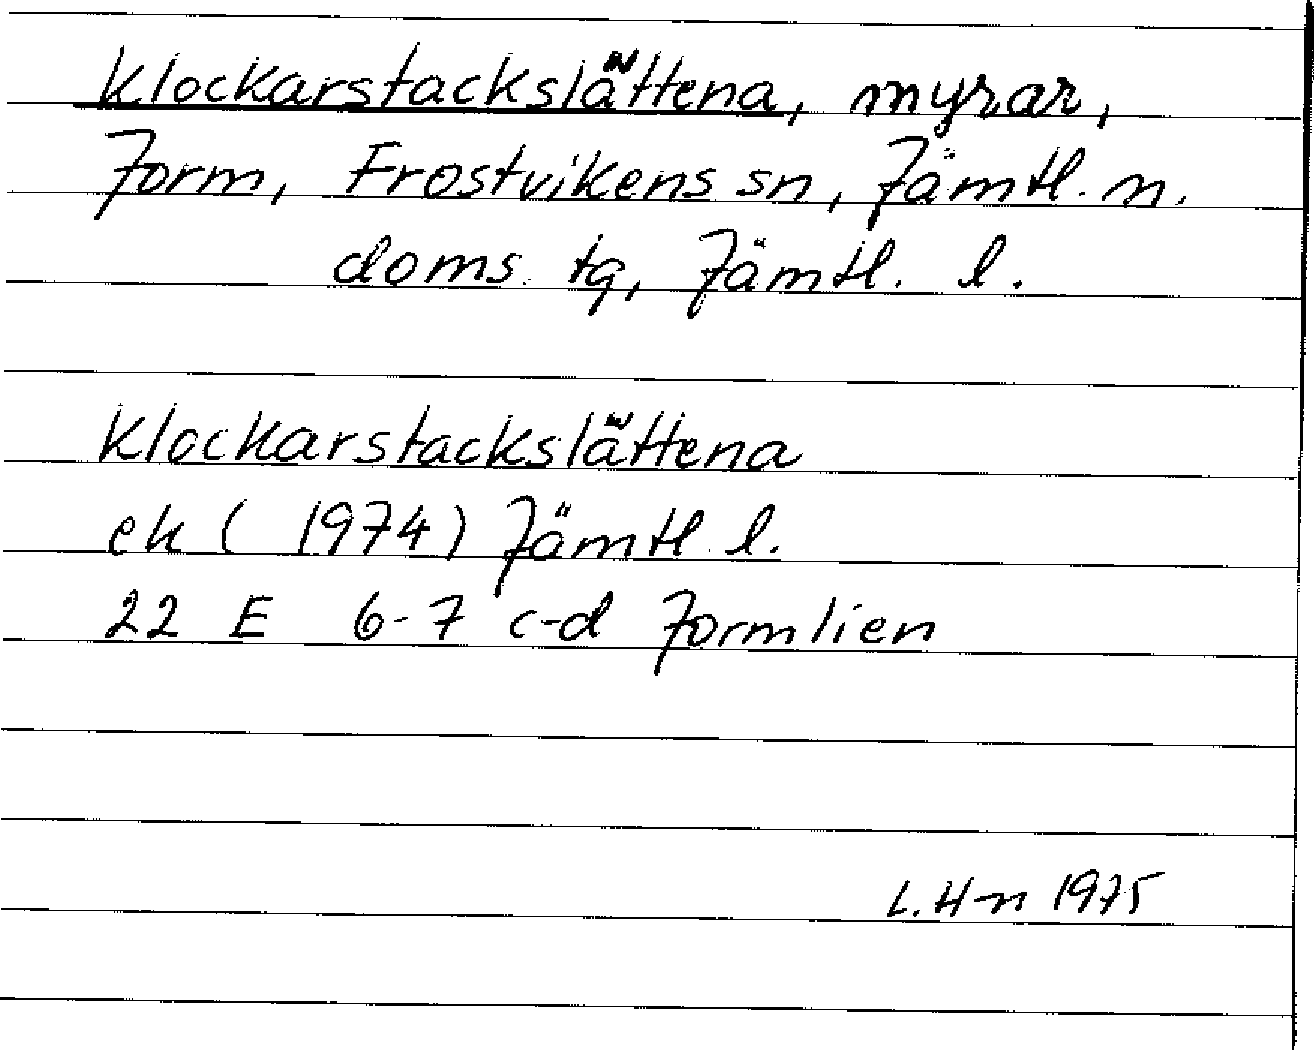 Klockarstackslättena, myrar,
Jorm, Frostvikens sn, Jämtl. n.
doms. tg, Jämtl. l.
Klockarstackslättena
ek ( 1974) Jämtl. l.
22 E 6-7 c-d Jormlien
L. H-n 1975